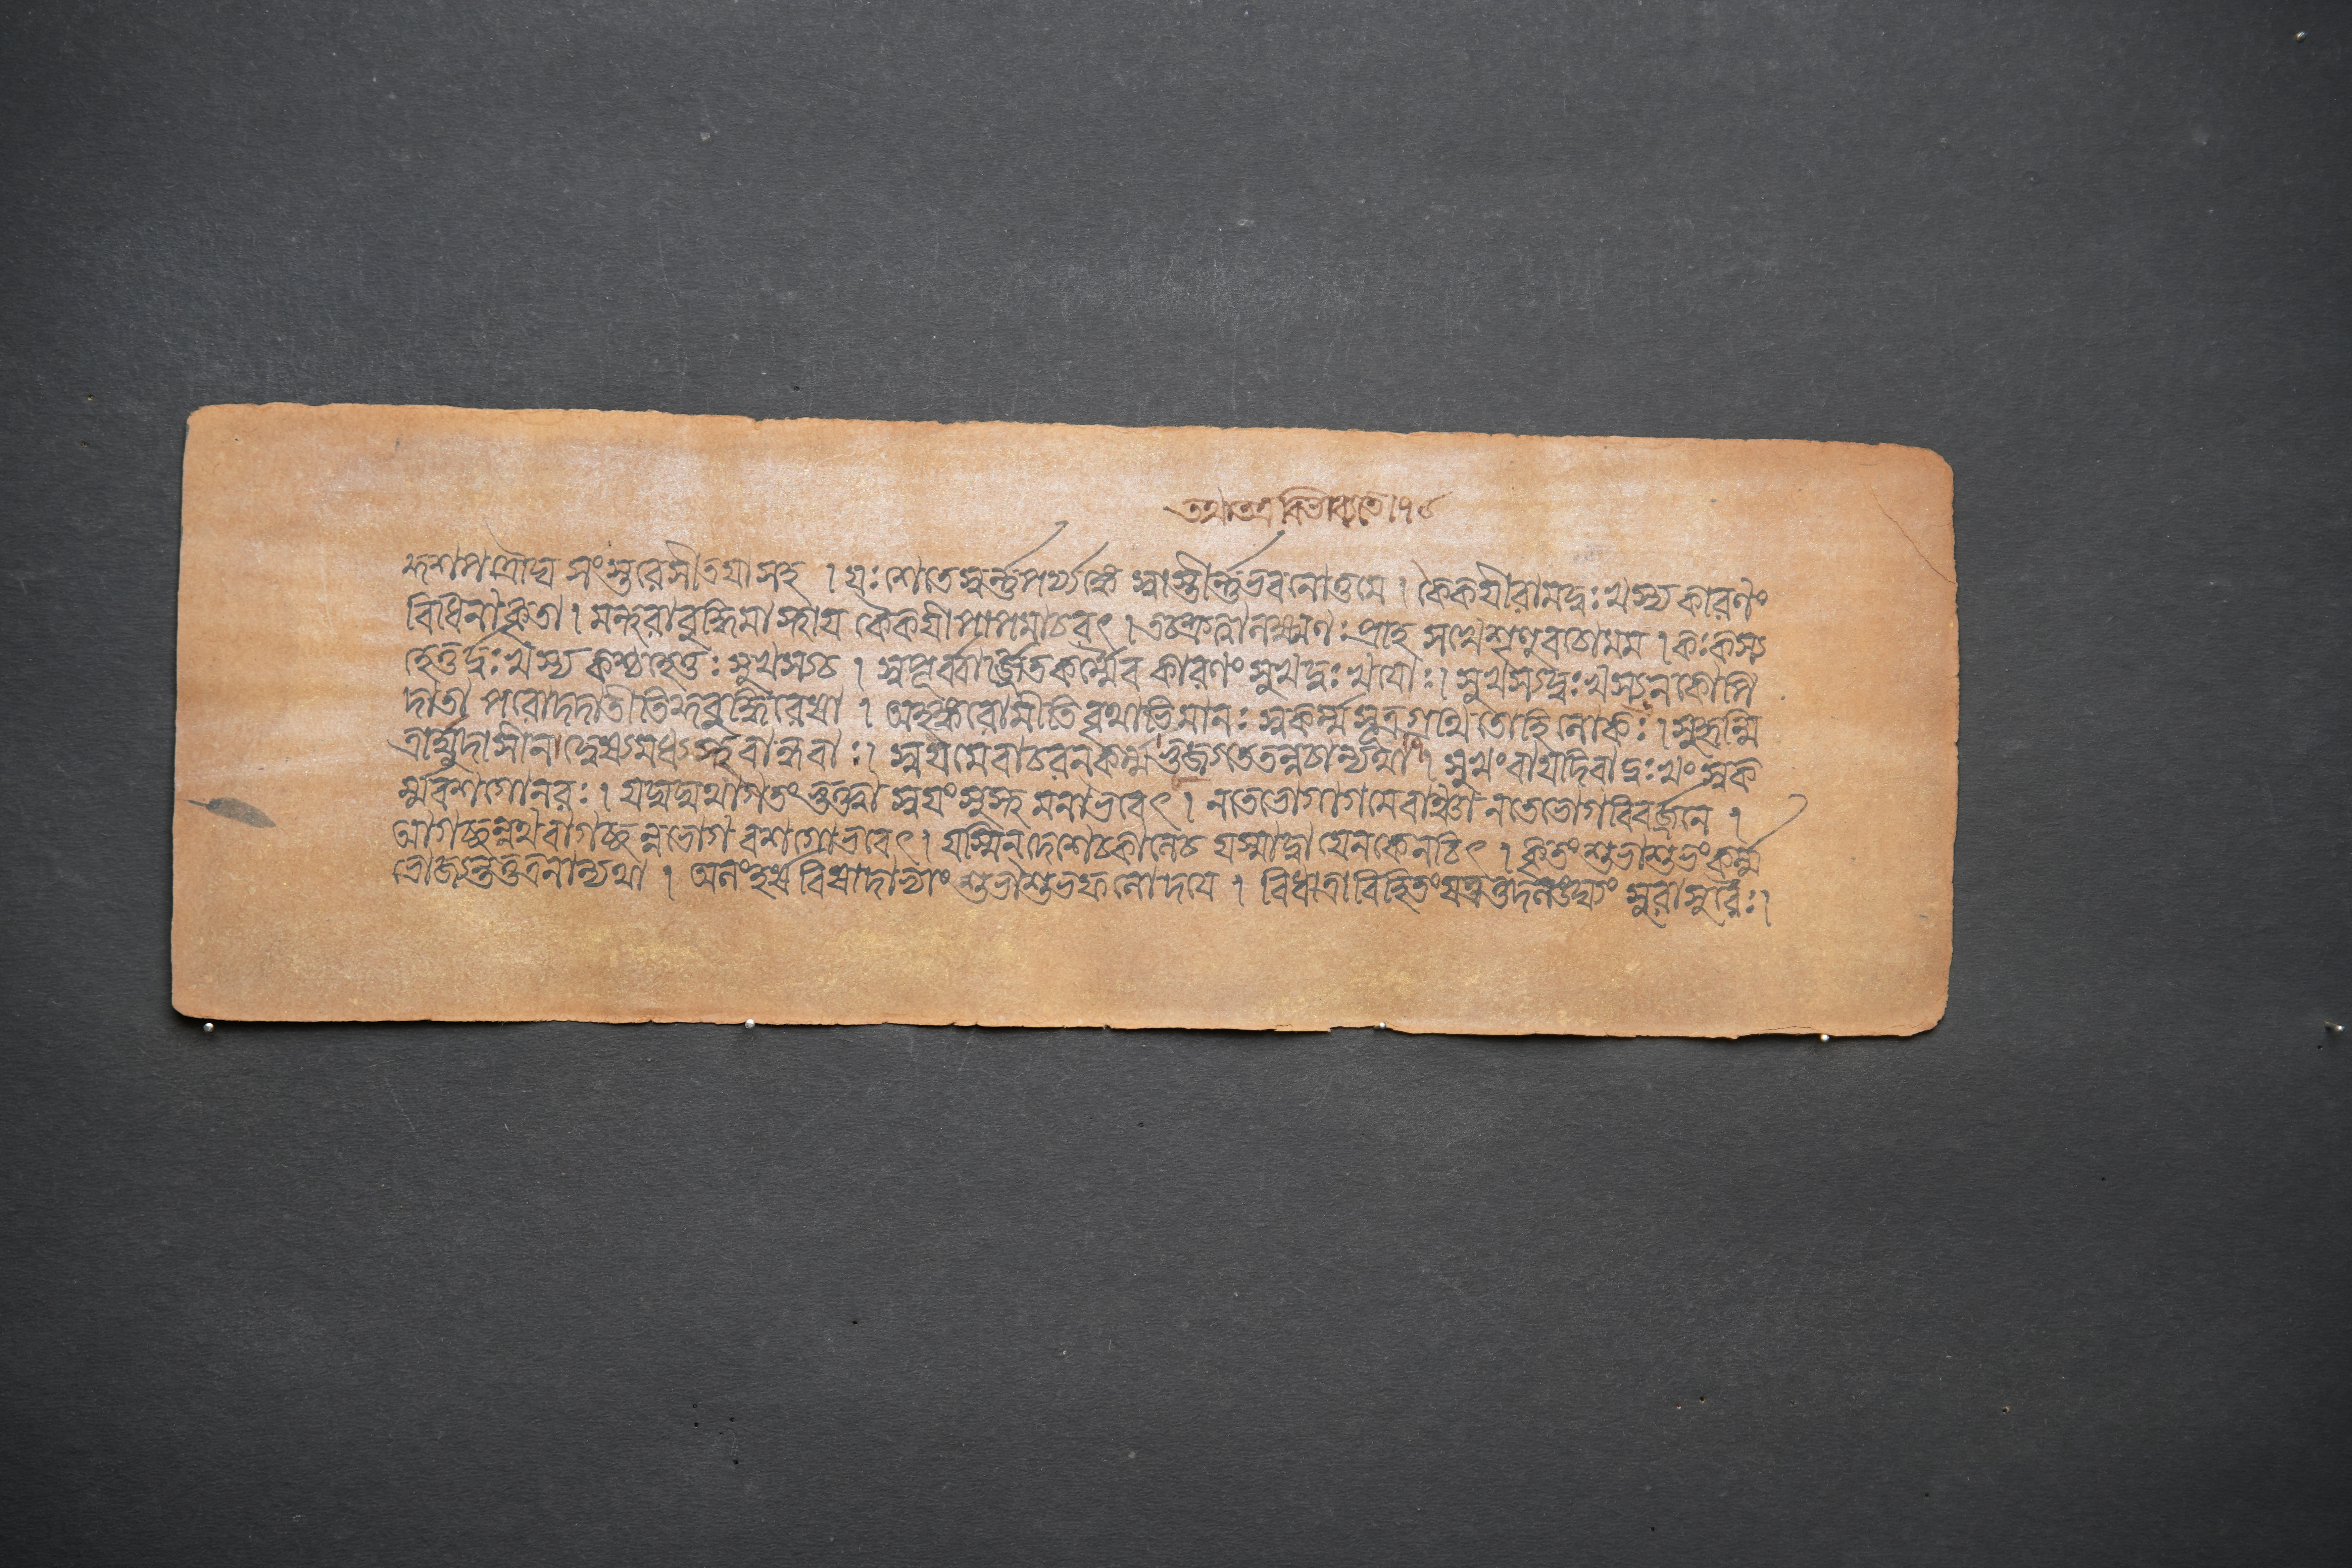 তথাতত্রবিভাব্যতে।৭৫
কুশপত্রৌঘ সংস্তরেসীতয়াসহ । যঃশেতেস্বর্ন্নপর্য্যঙ্কে স্বাস্তীর্ন্নেভবনোত্তমে । কৈকয়ীরামদুঃখস্য কারণং
বিধিনাকৃতা । মন্থরাবুদ্ধিমাস্থায় কৈকয়ীপাপমাচরৎ । তচ্ছ্রুত্বালক্ষ্মণঃ প্রাহ সখেশৃণুবচোমম । কঃকস্য
হেতুর্দ্দুঃখস্য কশ্চহেতুঃ সুখস্যচ । স্বপূর্ব্বার্জ্জিতকর্ম্মৈব কারণং সুখদুঃখয়োঃ । সুখস্যদুঃখস্যনকোপি
দাতা পরোদদাতীতিকুবুদ্ধিরেষা । অহঙ্করোমীতি বৃথাভিমানঃ স্বকর্ম্মসূত্রগ্রথিতোহিলোকঃ । সুহৃন্মি
ত্রার্য্যুদাসীন দ্বেষ্যমধ্যস্থবান্ধবাঃ । স্বয়মেবাচরনকর্ম্ম সুখংবাযদিবাদুঃখং স্বক
র্ম্মবশগোনরঃ । যদ্যদ্যথাগতং স্বয়ংসুস্থমনাভবেৎ । নতেভোগাগমেবাঞ্ছা নতেভোগবিবর্জ্জনে ।
আগচ্ছন্নথবাগচ্ছন্নভোগবশগোভবেৎ । যস্মিন্দেশেচকালেচ যস্মাদ্বা যেনকেনচিৎ । কৃতংশুভাশুভংকর্ম্ম
ভোজ্যন্তত্তত্রনান্যথা । অলংহর্ষবিষাদাভ্যাং শুভাশুভফলোদয়ে । বিধাত্রাবিহিতংযদ্যত্তদলঙ্ঘ্যং সুরাসুরৈঃ ।